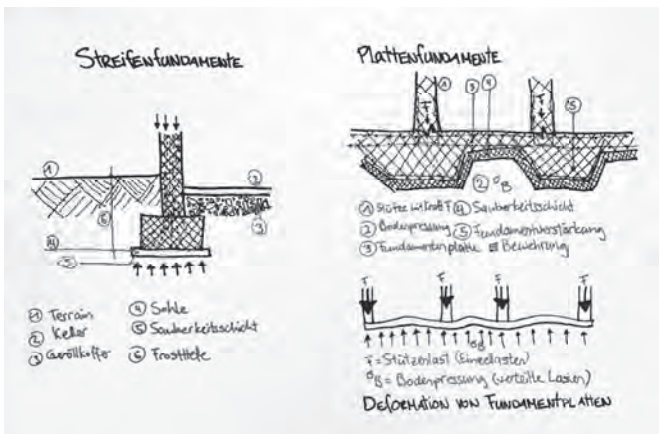 Streifenfundamente
1
2
3
4
5
6
① Terrain
② Keller
③ Geröllkoffer
④ Sohle
⑤ Sauberkeitsschicht
⑥ Frosttiefe
Plattenfundamente
1 3 4
5
F F
② σB
① Stütze mit Kraft F ④ Sauberkeitsschicht
② Bodenpressung ⑤ Fundamentverstärkung
③ Fundamentplatte Bewehrung
F F F F
σB
F = Stützenlast (Einzellasten)
σB = Bodenpressung (verteilte Lasten)
Deformation von Fundamentplatten